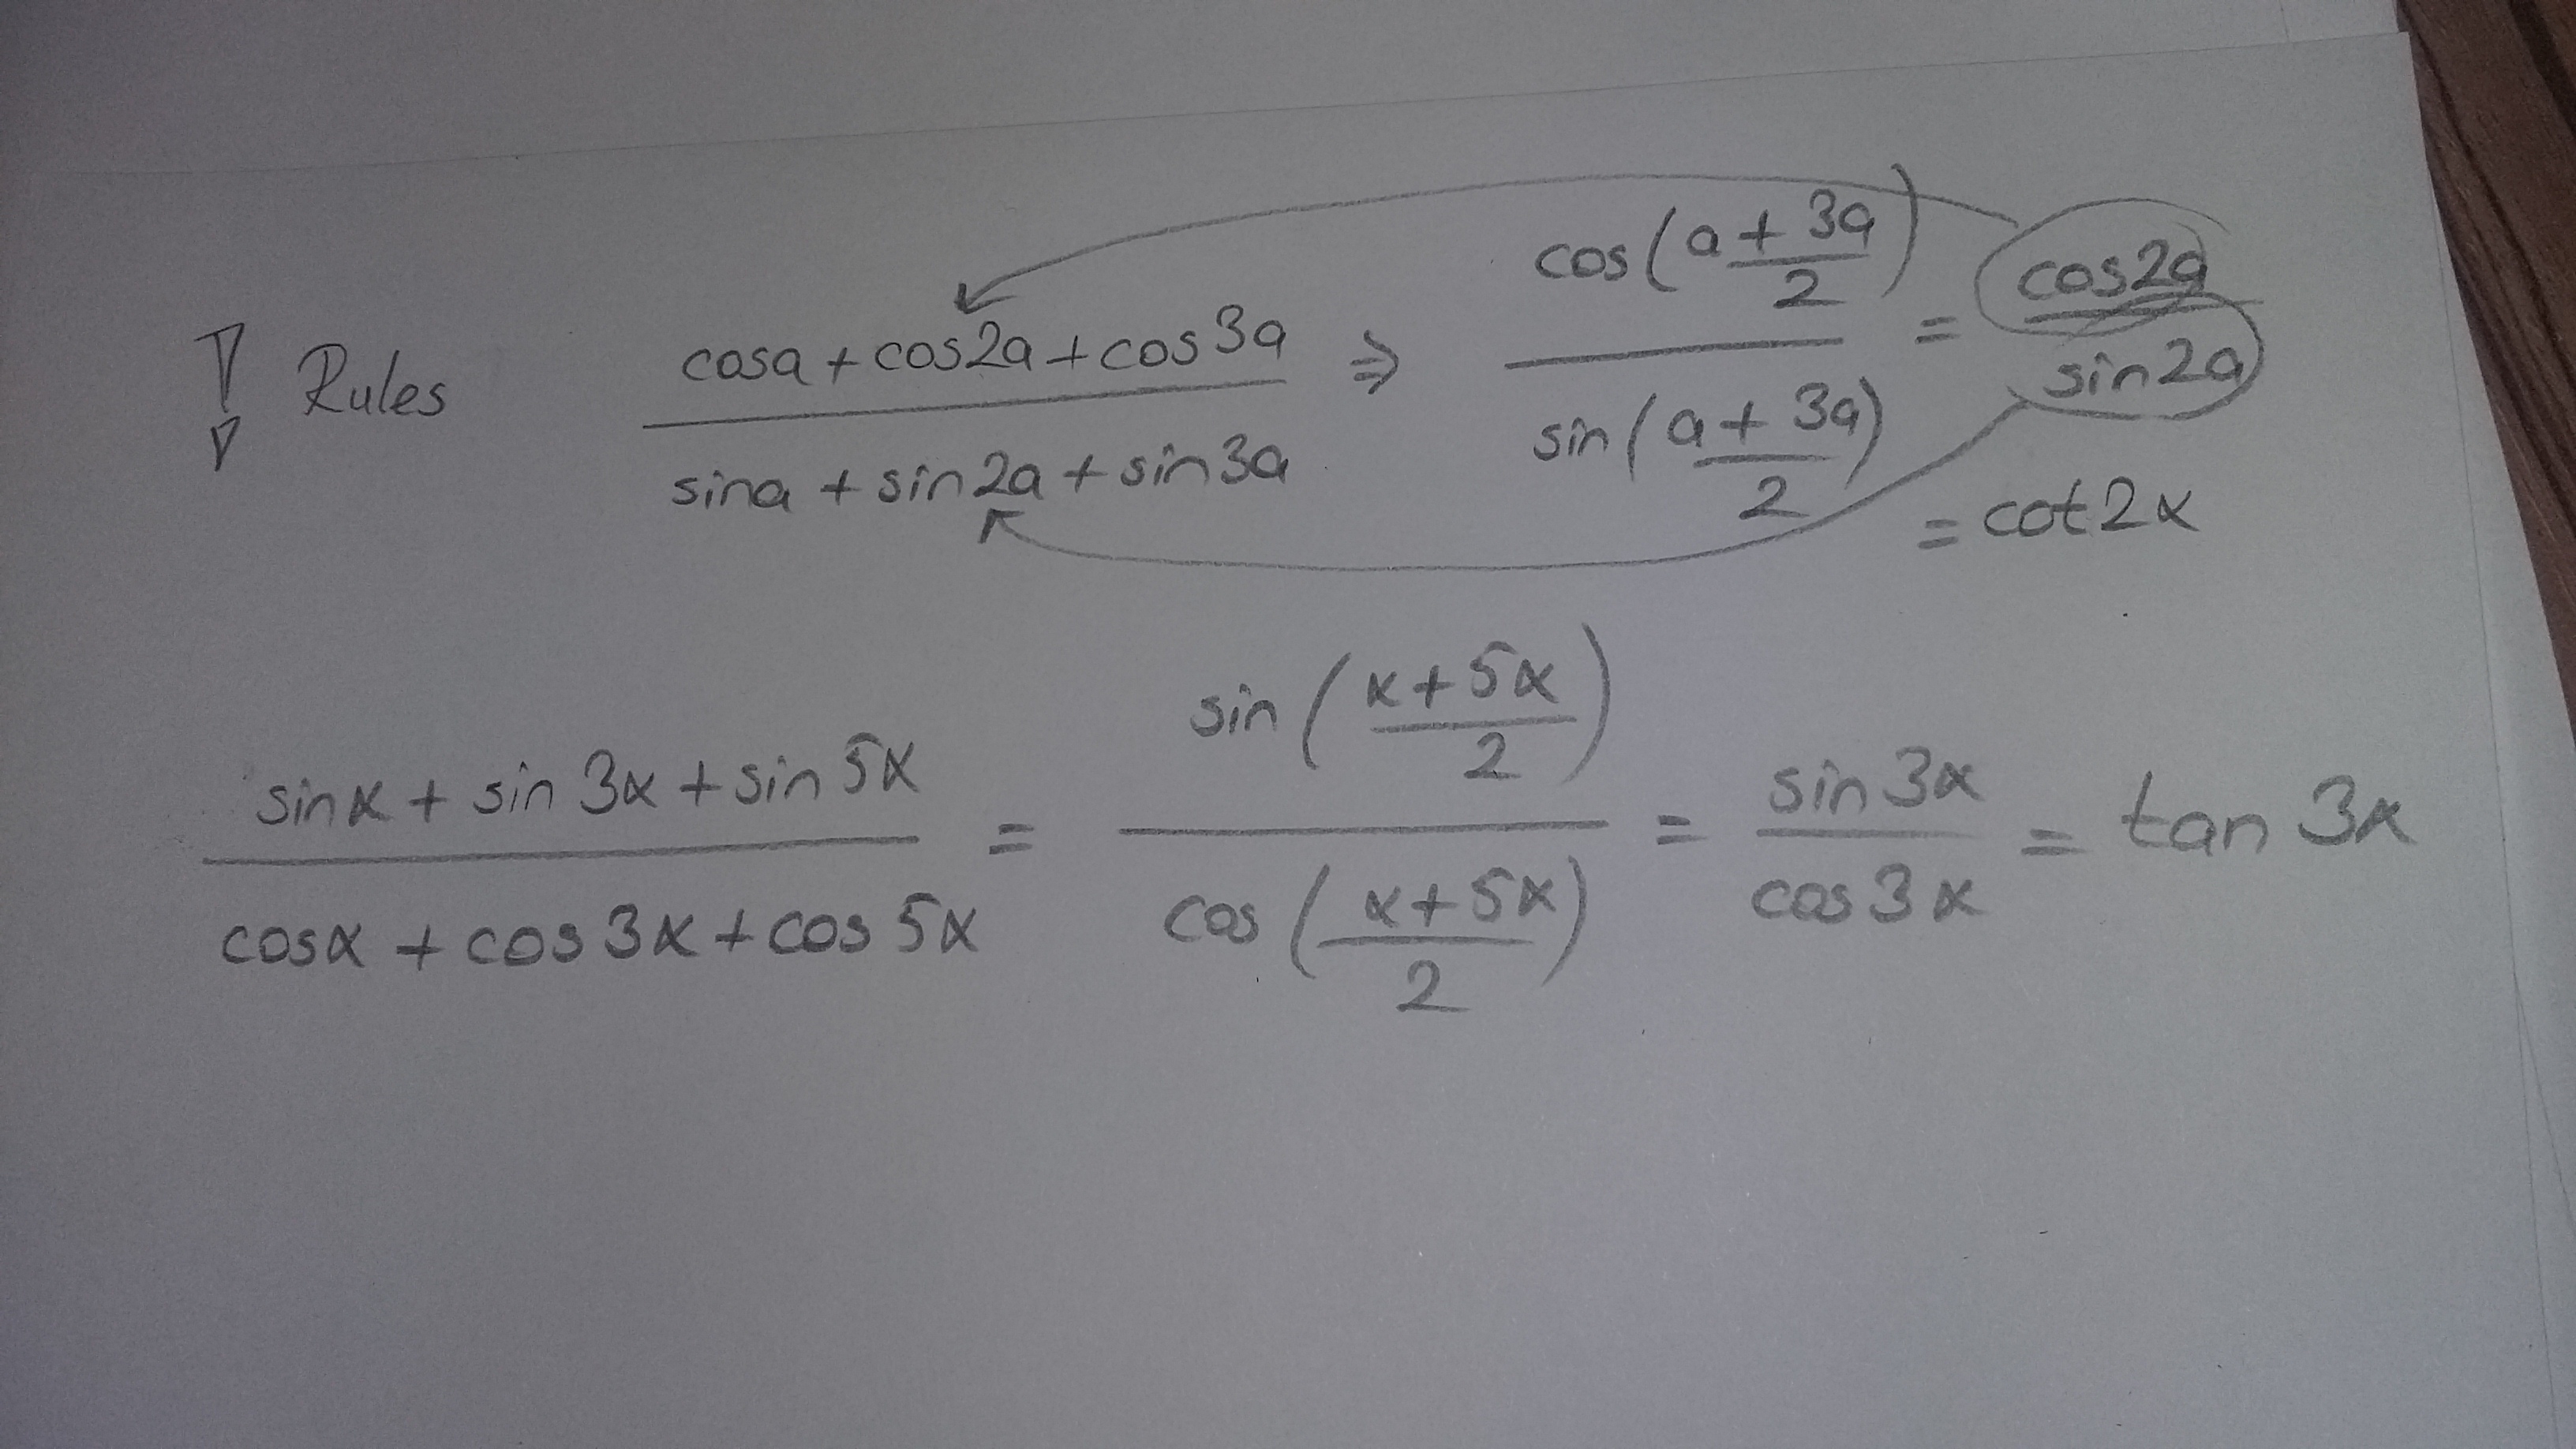 ! Rules (cosa + cos2a + cos3a)/(sina + sin2a + sin3a) ⇒ cos((a + 3a)/2)/sin((a + 3a)/2) = cos2a/sin2a
= cot2x
(sinx + sin3x + sin5x)/(cosx + cos3x + cos5x) = sin((x+5x)/2)/cos((x+5x)/2) = sin3x/cos3x = tan3x